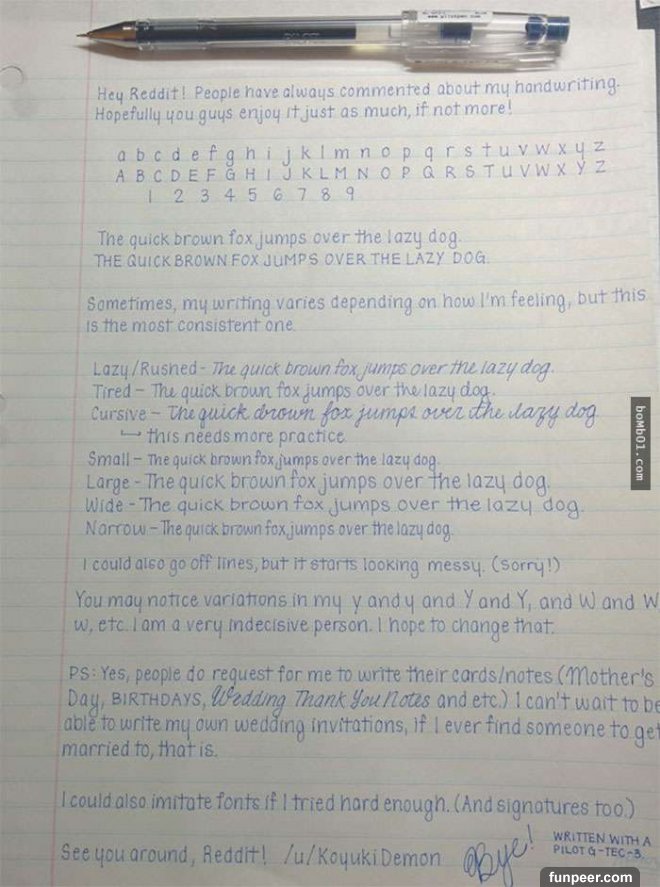 www.pilotpen.com
PILOT
Hey Reddit! People have always commented about my handwriting.
Hopefully you guys enjoy it just as much, if not more!
a b c d e f g h i j k l m n o p q r s t u v w x y z
A B C D E F G H I J K L M N O P Q R S T U V W X Y Z
1 2 3 4 5 6 7 8 9
The quick brown fox jumps over the lazy dog.
THE QUICK BROWN FOX JUMPS OVER THE LAZY DOG.
Sometimes, my writing varies depending on how I'm feeling, but this
is the most consistent one.
Lazy/Rushed - The quick brown fox jumps over the lazy dog.
Tired - The quick brown fox jumps over the lazy dog.
Cursive - The quick brown fox jumps over the lazy dog
this needs more practice.
Small - The quick brown fox jumps over the lazy dog.
Large - The quick brown fox jumps over the lazy dog.
Wide - The quick brown fox jumps over the lazy dog.
Narrow - The quick brown fox jumps over the lazy dog.
I could also go off lines, but it starts looking messy. (sorry!)
You may notice variations in my y and y and Y and Y, and W and W
w, etc. I am a very indecisive person. I hope to change that.
PS: Yes, people do request for me to write their cards/notes (Mother's
Day, BIRTHDAYS, Wedding Thank You Notes and etc.) I can't wait to be
able to write my own wedding invitations, if I ever find someone to get
married to, that is.
I could also imitate fonts if I tried hard enough. (And signatures too.)
See you around, Reddit! /u/KoyukiDemon Bye!
WRITTEN WITH A
PILOT G-TEC-3.
bomb01.com
funpeer.com